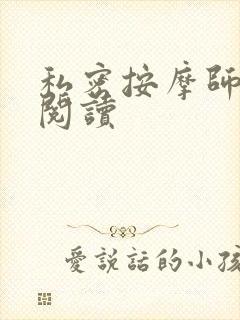 私密按摩師
閱讀
愛說話的小孩